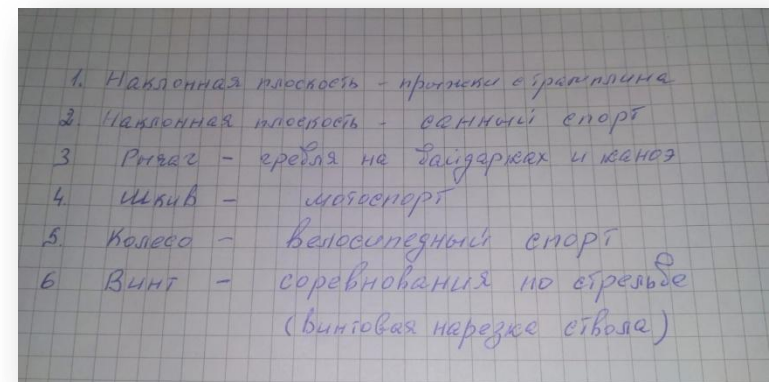 1. Наклонная плоскость - прыжки с трамплина
2. Наклонная плоскость - санный спорт
3 Рычаг - гребля на байдарках и каноэ
4. Шкив - мотоспорт
5. Колесо - велосипедный спорт
6 Винт - соревнования по стрельбе
(винтовая нарезка ствола)